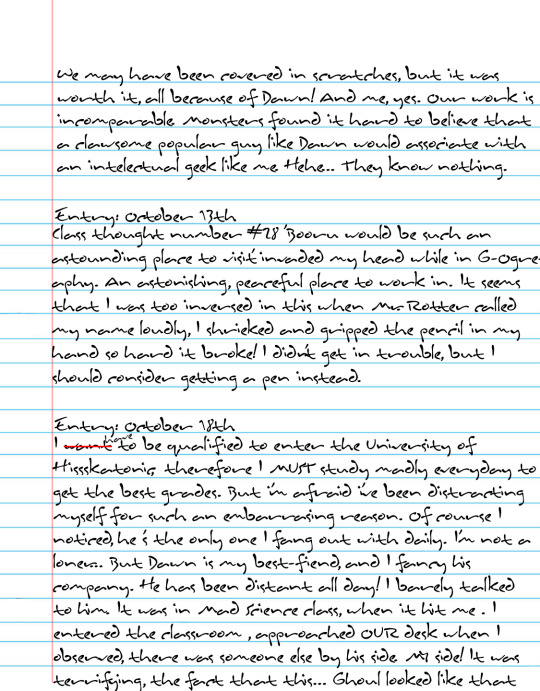 We may have been covered in scratches, but it was
worth it, all because of Dawn! And me, yes. Our work is
incomparable Monsters found it hard to believe that
a clawsome popular guy like Dawn would associate with
an intelectual geek like me Hehe.. They know nothing.
Entry: October 13th
Class thought number #28 'Booru would be such an
astounding place to visit' invaded my head while in G-Ogre-
aphy. An astonishing, peaceful place to work in. It seems
that I was too inversed in this when Mr. Rotter called
my name loudly, I shrieked and gripped the pencil in my
hand so hard it broke! I didn't get in trouble, but I
should consider getting a pen instead.
Entry: October 18th
I want have to be qualified to enter the University of
Hissskatonic, therefore I MUST study madly everyday to
get the best grades. But i'm afraid i've been distracting
myself for such an embarrasing reason. Of course I
noticed, he's the only one I fang out with daily. I'm not a
loner.. But Dawn is my best-fiend, and I fancy his
company. He has been distant all day! I barely talked
to him. It was in Mad Science class, when it hit me. I
entered the classroom, approached OUR desk when I
observed, there was someone else by his side. MY side! It was
terrifying, the fact that this... Ghoul looked like that